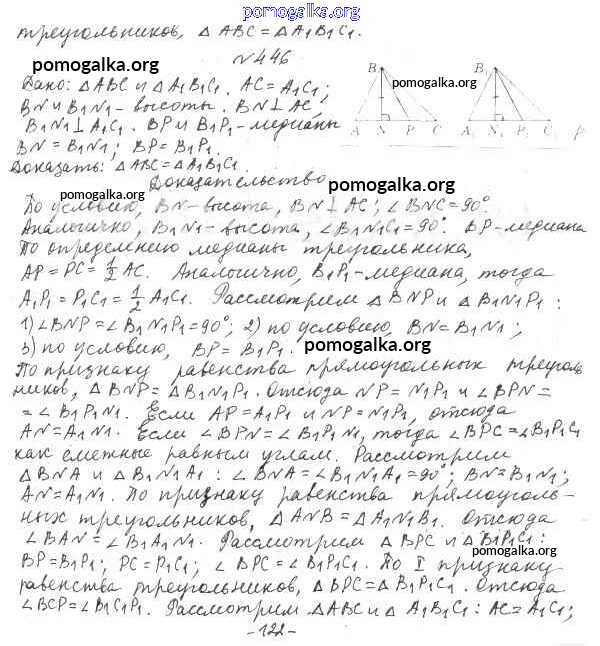 pomogalka.org
треугольников, △ABC = △A₁B₁C₁.
№446
pomogalka.org
Дано: △ABC и △A₁B₁C₁. AC = A₁C₁;
BN и B₁N₁ - высоты. BN ⊥ AC;
pomogalka.org
B₁N₁ ⊥ A₁C₁. BP и B₁P₁ - медианы
BN = B₁N₁; BP = B₁P₁.
Доказать: △ABC = △A₁B₁C₁.
B
A N P C
B₁
A₁ N₁ P₁ C₁
pomogalka.org
Доказательство
pomogalka.org
pomogalka.org
По условию, BN - высота, BN ⊥ AC; ∠BNC = 90°.
Аналогично, B₁N₁ - высота, ∠B₁N₁C₁ = 90°. BP - медиана
По определению медианы треугольника,
AP = PC = 1/2 AC. Аналогично, B₁P₁ - медиана, тогда
A₁P₁ = P₁C₁ = 1/2 A₁C₁. Рассмотрим △BNP и △B₁N₁P₁:
1) ∠BNP = ∠B₁N₁P₁ = 90°; 2) по условию, BN = B₁N₁;
3) по условию, BP = B₁P₁.
pomogalka.org
По признаку равенства прямоугольных треуголь-
ников, △BNP = △B₁N₁P₁. Отсюда NP = N₁P₁ и ∠BPN =
= ∠B₁P₁N₁. Если AP = A₁P₁ и NP = N₁P₁, отсюда
AN = A₁N₁. Если ∠BPN = ∠B₁P₁N₁, тогда ∠BPC = ∠B₁P₁C₁
как смежные равным углам. Рассмотрим
△BNA и △B₁N₁A₁: ∠BNA = ∠B₁N₁A₁ = 90°; BN = B₁N₁;
AN = A₁N₁. По признаку равенства прямоуголь-
ных треугольников, △ANB = △A₁N₁B₁. Отсюда
∠BAN = ∠B₁A₁N₁. Рассмотрим △BPC и △B₁P₁C₁:
pomogalka.org
BP = B₁P₁; PC = P₁C₁; ∠BPC = ∠B₁P₁C₁. По I признаку
равенства треугольников, △BPC = △B₁P₁C₁. Отсюда
∠BCP = ∠B₁C₁P₁. Рассмотрим △ABC и △A₁B₁C₁: AC = A₁C₁;
-122-
pomogalka.org